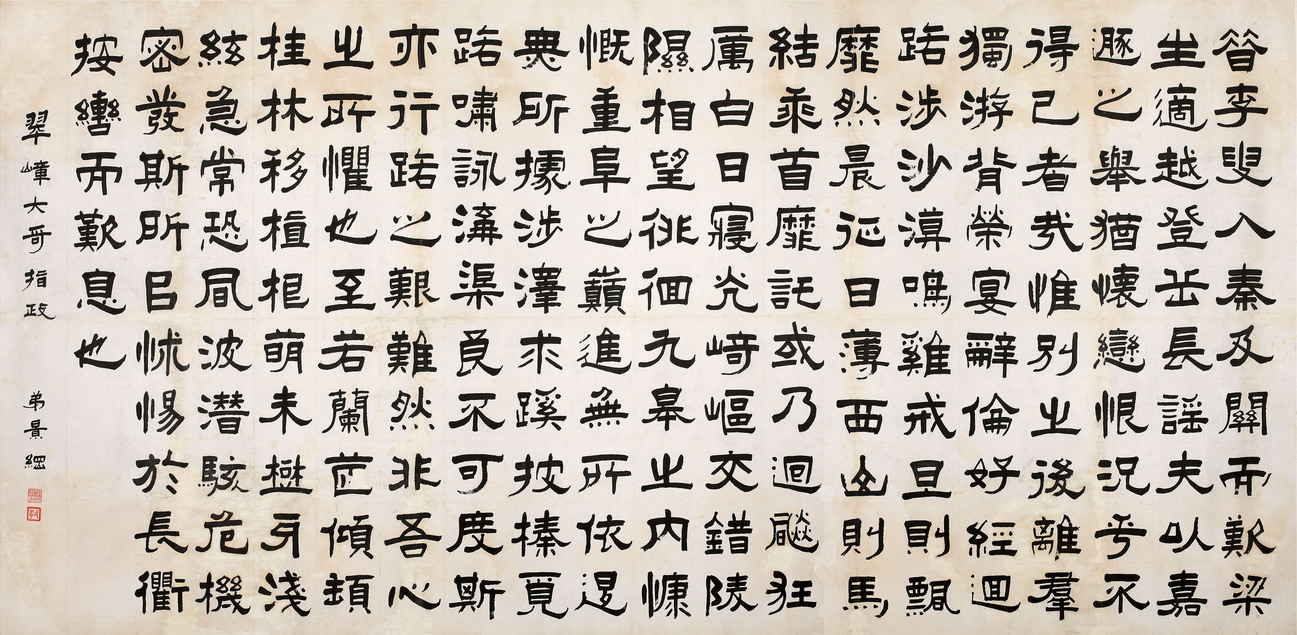 昔李叟入秦及關而歎梁
生適越登岳長謠夫以嘉
遯之舉猶懷戀恨況乎不
得已者哉惟別之後離羣
獨游背榮宴辭倫好經迴
路涉沙漠鳴雞戒旦則飄
靡然晨征日薄西山則馬
結乘首靡託或乃迴飈狂
厲白日寢光崎嶇交錯陵
隰相望徘徊九皋之內慷
慨重阜之巔進無所依退
典所據涉澤求蹊披榛覓
路嘯詠溝渠良不可度斯
亦行路之艱難然非吾心
之所懼也至若蘭茝傾頓
桂林移植根萌未樹牙淺
絃急常恐風波潛駭危機
密發斯所以怵惕於長衢
按轡而歎息也
翠嶂大哥指政 弟景綱